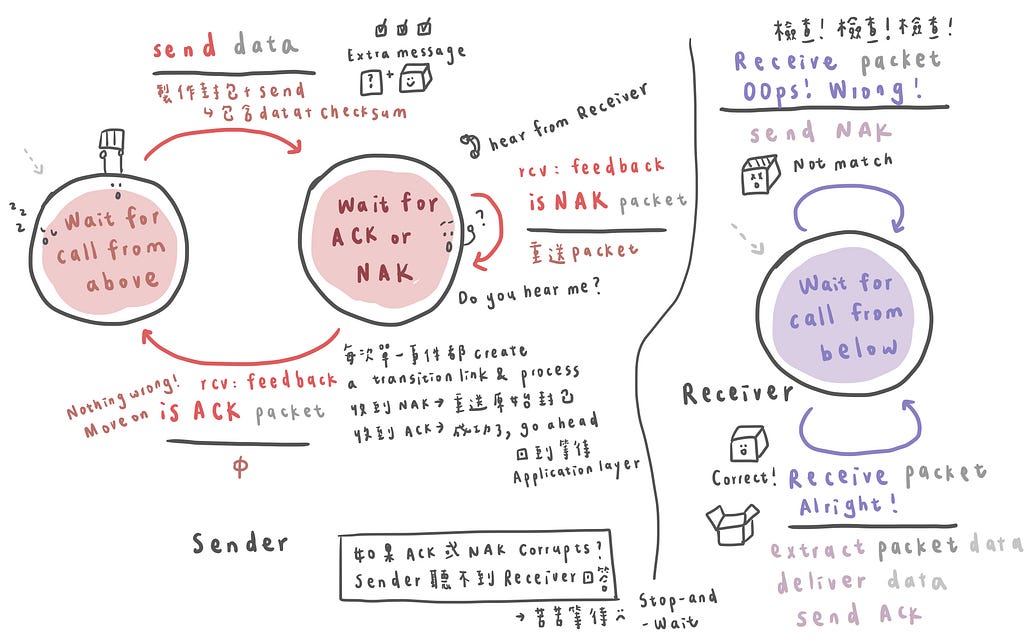 send data
製作封包+ send
↳ 包含data+ checksum
Extra message
? +
hear from Receiver
rcv: feedback
is NAK packet
重送packet
z z z
Wait for
call from
above
Wait for
ACK or
NAK
?
Do you hear me?
Nothing wrong!
Move on
rcv: feedback
is ACK packet
ϕ
每次單一事件都 create
a transition link & process
收到 NAK→ 重送原始封包
收到 ACK→ 成功了, go ahead
回到等待
Application layer
Sender
如果 ACK 或 NAK Corrupts?
Sender 聽不到 Receiver 回答
→ 苦苦等待
Stop-and
-Wait
檢查! 檢查! 檢查!
Receive packet
OOps! Wrong!
send NAK
Not match
Wait for
call from
below
Receiver
Correct!
Receive packet
Alright!
extract packet data
deliver data
send ACK